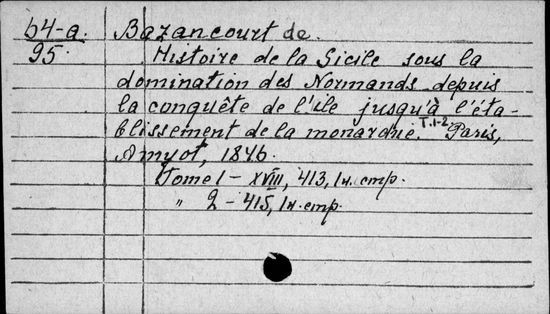 64-a. Bazancourt de.
95. Histoire de la Sicile sous la
domination des Normands depuis
la conquête de l'île jusqu'à l'éta-
blissement de la monarchie. T.1-2 Paris,
Amyot, 1846.
Tome 1 – XVIII, 413, 1 н. стр.
„ 2 – 415, 1 н. стр.